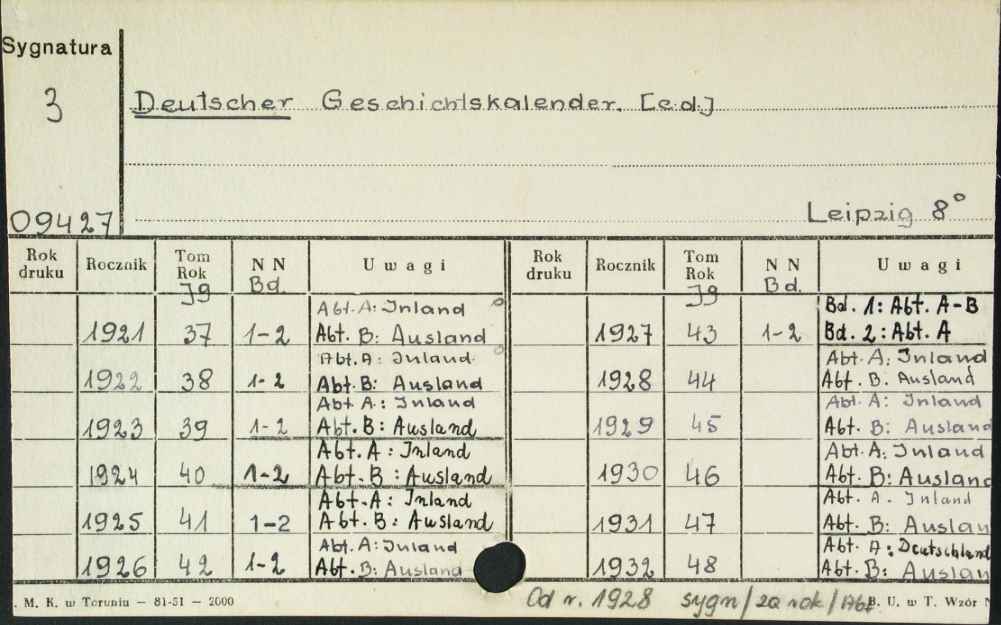 Sygnatura
3
Deutscher Geschichtskalender. [e.d.]
09427
Leipzig 8°
Rok druku Rocznik Tom Rok Jg N N Bd. Uwagi Rok druku Rocznik Tom Rok Jg N N Bd. Uwagi
Abt. A: Inland
1921 37 1-2 Abt. B: Ausland
Abt. A: Inland
1922 38 1-2 Abt. B: Ausland
Abt. A: Inland
1923 39 1-2 Abt. B: Ausland
Abt. A: Inland
1924 40 1-2 Abt. B: Ausland
Abt. A: Inland
1925 41 1-2 Abt. B: Ausland
Abt. A: Inland
1926 42 1-2 Abt. B: Ausland
Bd. 1: Abt. A-B
1927 43 1-2 Bd. 2: Abt. A
Abt. A: Inland
1928 44 Abt. B. Ausland
Abt. A: Inland
1929 45 Abt. B: Ausland
Abt. A: Inland
1930 46 Abt. B: Ausland
Abt. A. Inland
1931 47 Abt. B: Auslan
Abt. A: Deutschland
1932 48 Abt. B: Auslan
. M. K. w Toruniu — 81-51 — 2000
Od r. 1928 sygn/za rok/Abt.
B. U. w T. Wzór N